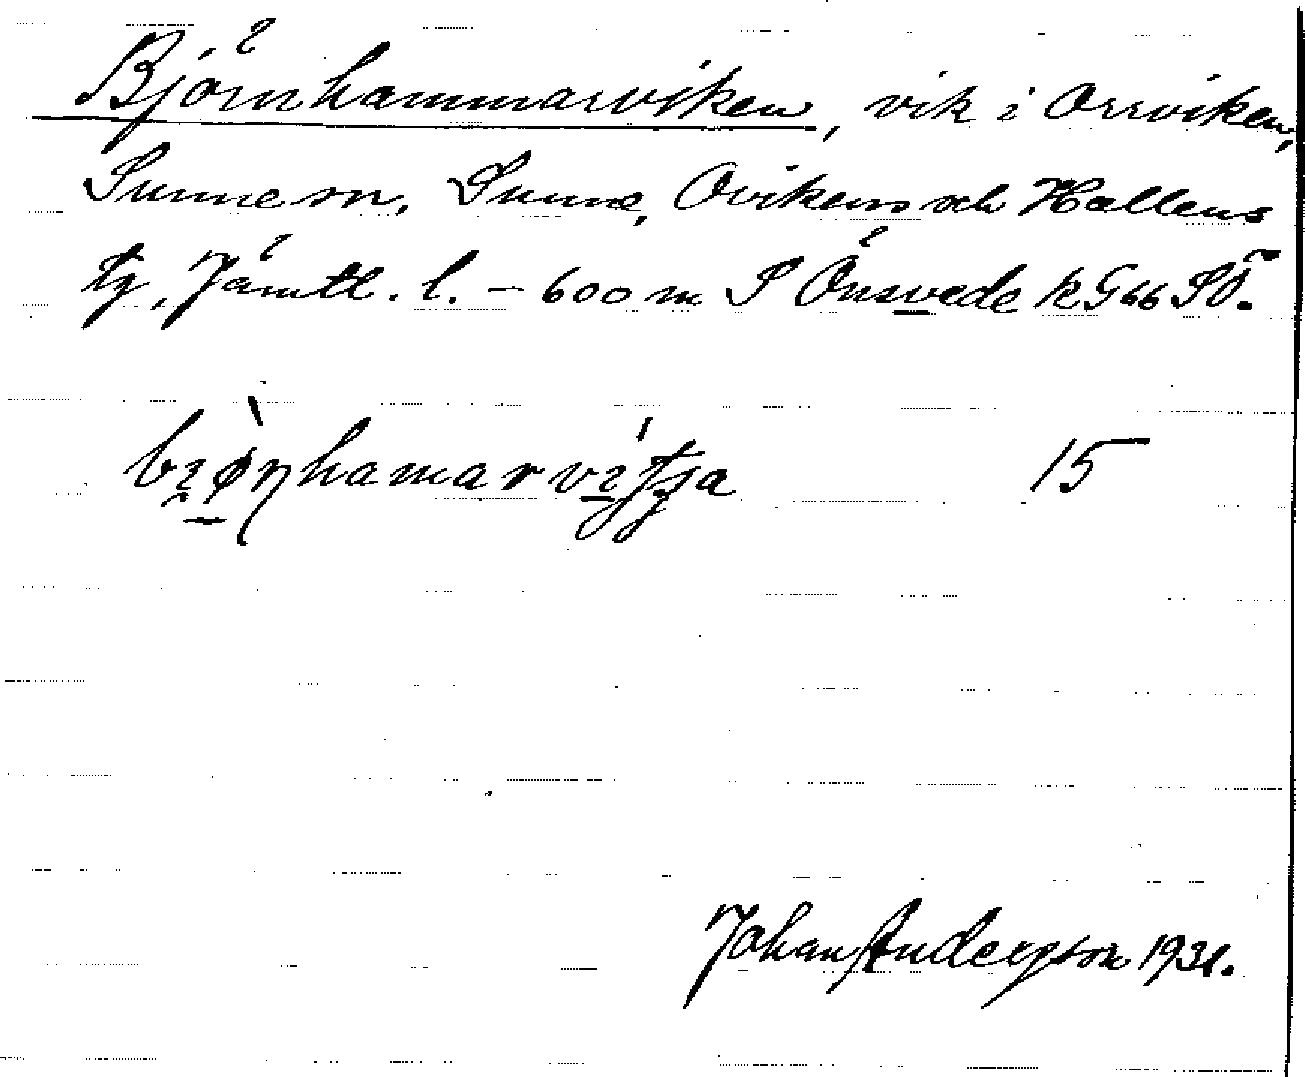 Björnhammarviken, vik i Orrviken,
Sunne sn, Sunne, Ovikens och Hallens
tg, Jämtl. l. – 600 m S Önsvede k G 46 SÖ.
15
Johan Anderson 1931.